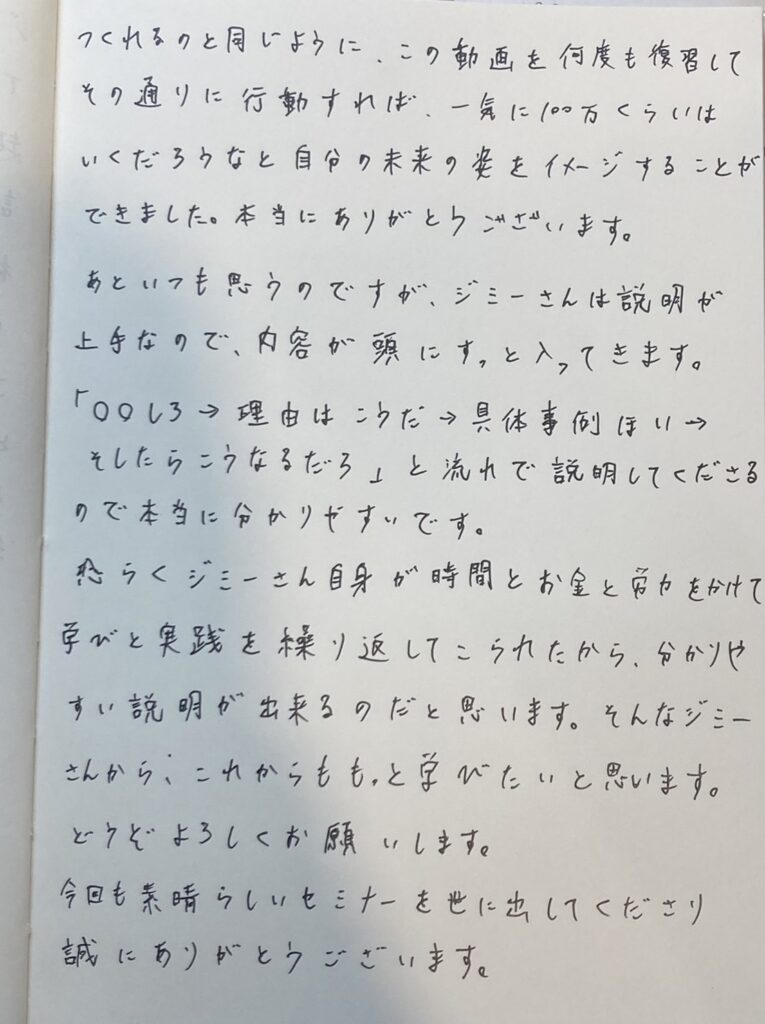 つくれるのと同じように、この動画を何度も復習して
その通りに行動すれば、一気に100万くらいは
いくだろうなと自分の未来の姿をイメージすることが
できました。本当にありがとうございます。
あといつも思うのですが、ジミーさんは説明が
上手なので、内容が頭にすっと入ってきます。
「〇〇しろ→理由はこうだ→具体事例ほい→
そしたらこうなるだろ」と流れで説明してくださる
ので本当に分かりやすいです。
恐らくジミーさん自身が時間とお金と労力をかけて
学びと実践を繰り返してこられたから、分かりや
すい説明が出来るのだと思います。そんなジミー
さんから、これからももっと学びたいと思います。
どうぞよろしくお願いします。
今回も素晴らしいセミナーを世に出してくださり
誠にありがとうございます。